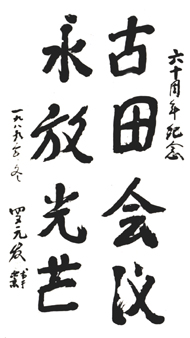 六十周年纪念
古田会议
永放光芒
一九八九年冬
罗元发